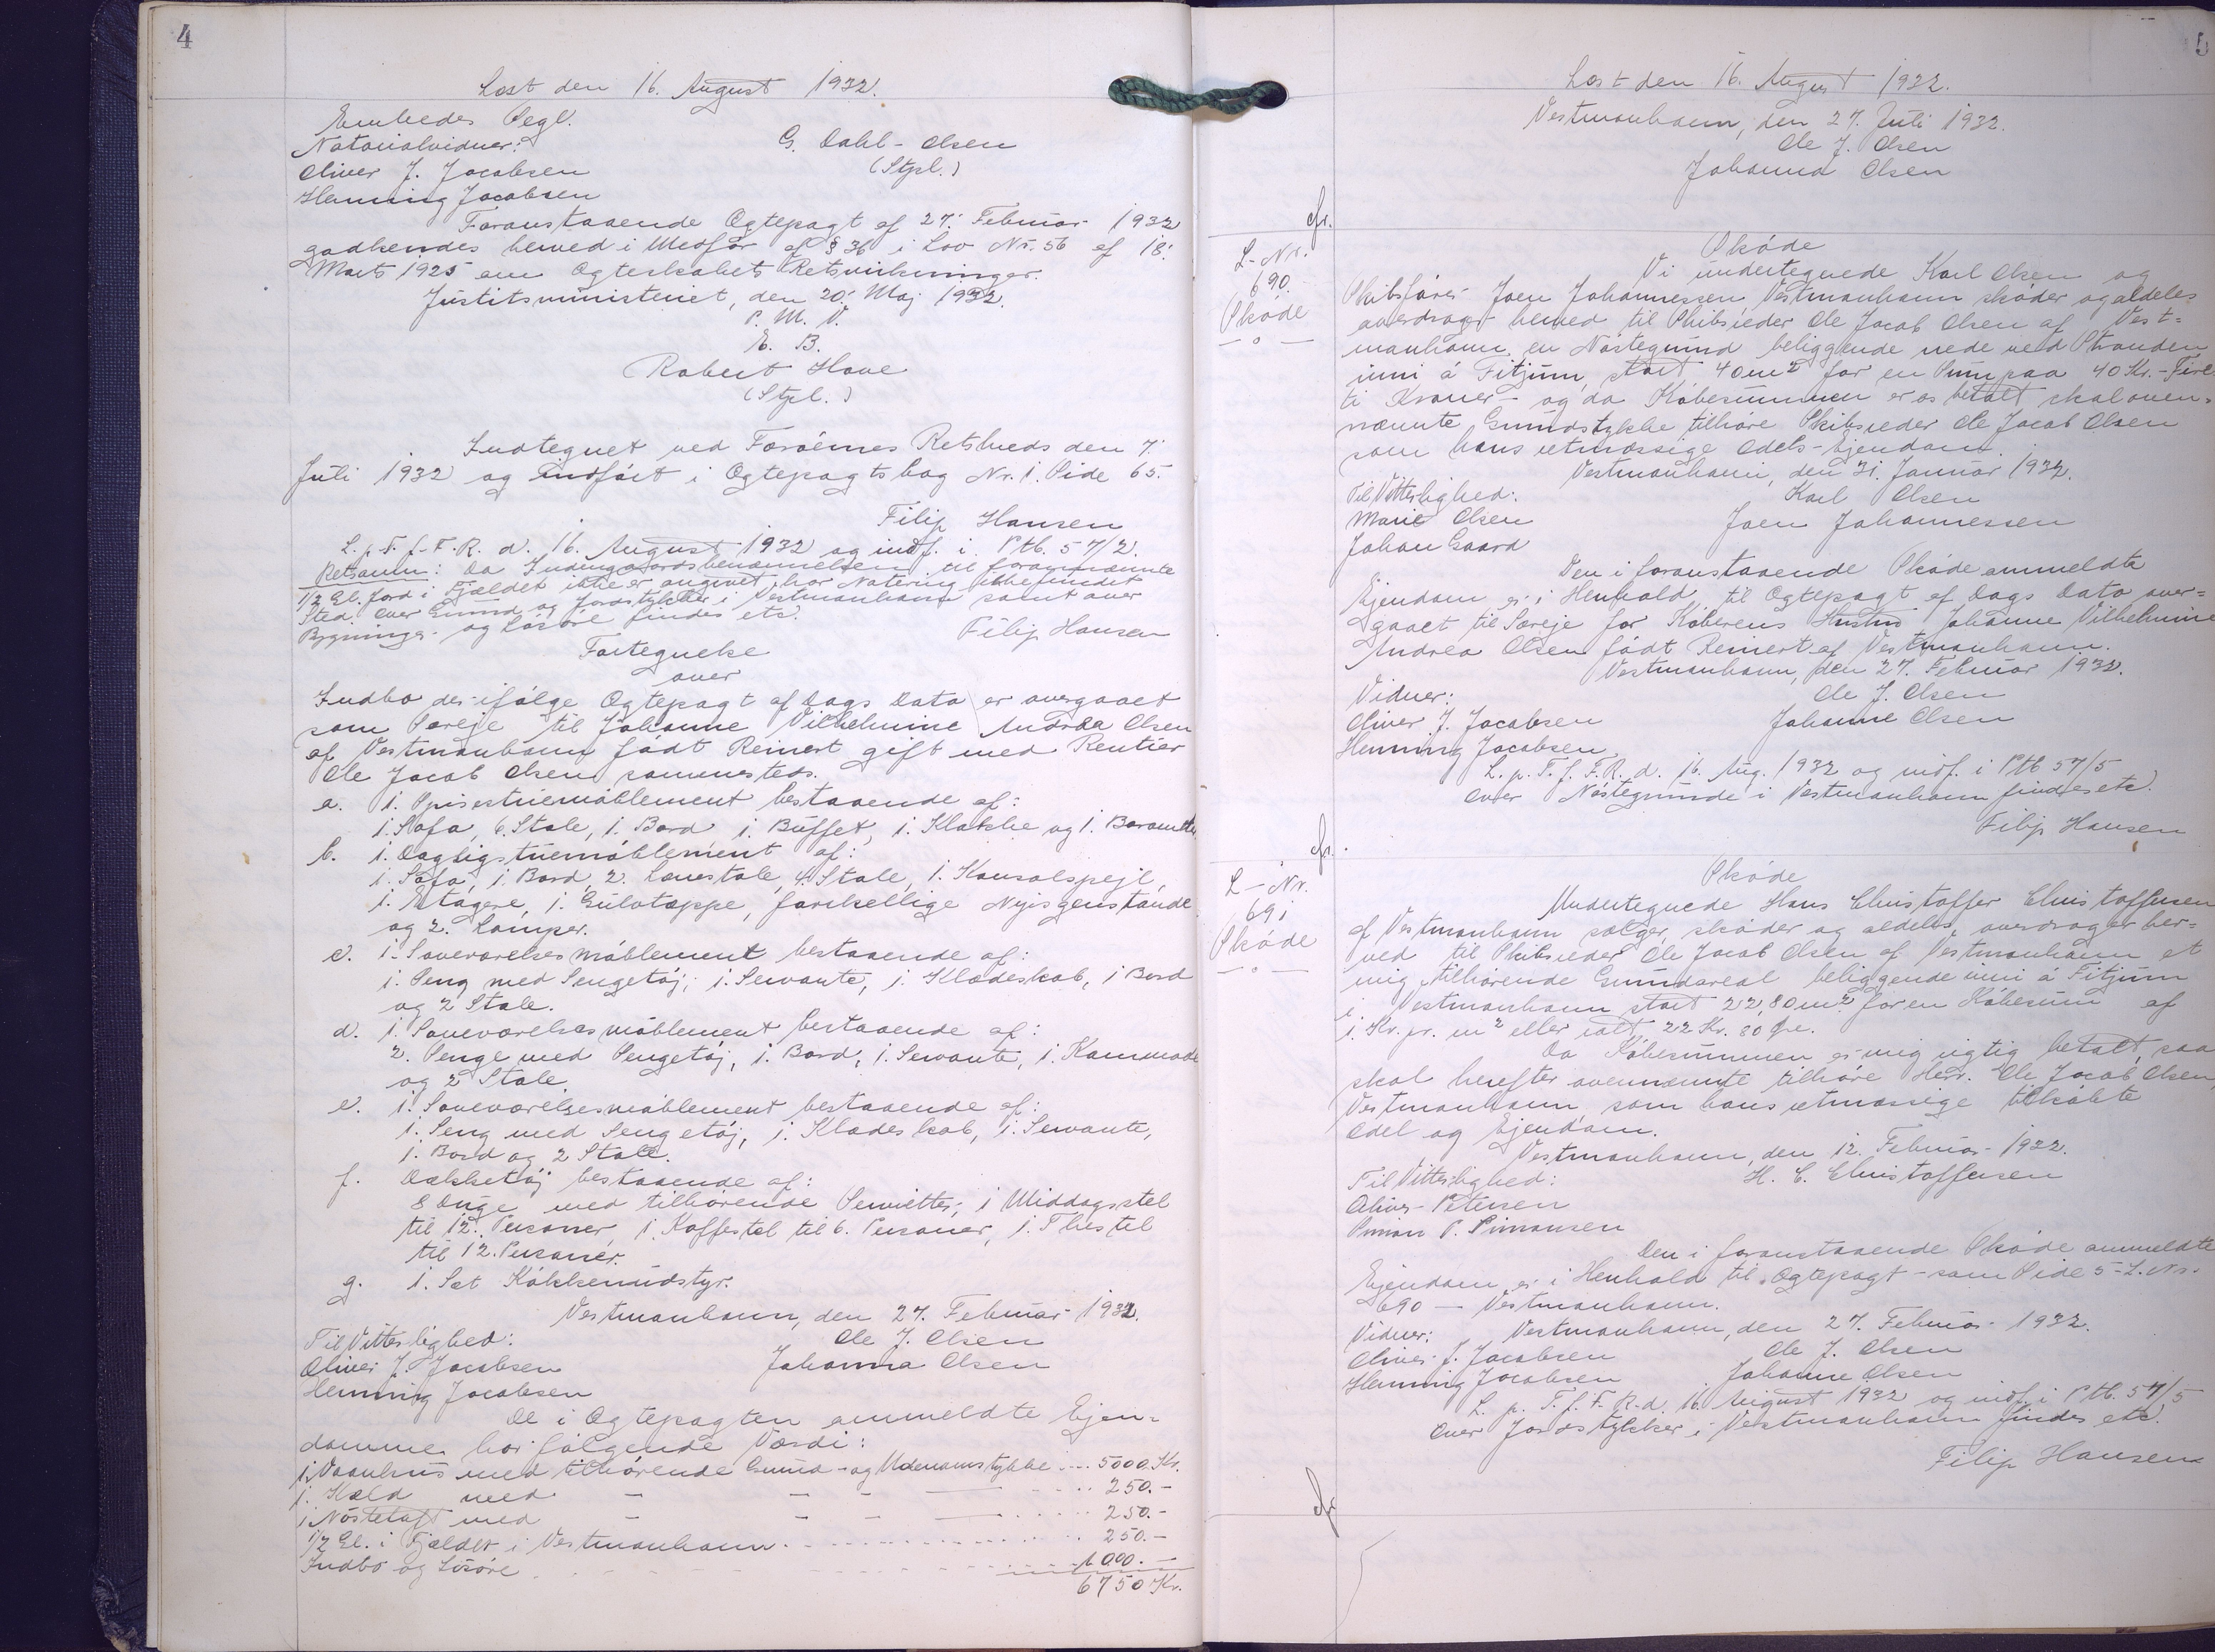 4
Læst den 16. August 1932.
Embedes Segl.
Notarialvidner:
G. Dahl-Olsen
Oliver J. Jacobsen
(Stpl.)
Henning Jacobsen
Foranstaaende Ægtepagt af 27. Februar 1932
godkendes herved i Medfør af § 36 i Lov Nr. 56 af 18.
Marts 1925 om Ægteskabets Retsvirkninger.
Justitsministeriet, den 20. Maj 1932.
P. M. V.
E. B.
Robert Hove
(Stpl.)
Indtegnet ved Færöernes Retskreds den 7.
Juli 1932 og indført i Ægtepagtsbog Nr. 1. Side 65.
Filip Hansen
L. p. T. f. F. R. d. 16. August 1932 og indf. i Ptb. 57/2.
Retsanm: Da Indmarksbenævnelsen til forannævnte
1/2 Gl. Jord i Fjeldet ikke er angivet, har Notering ikke fundet
Sted. Over Grund og Jordstykker i Vestmanhavn samt over
Bygninger og Løsöre findes etc.
Filip Hansen
Fortegnelse
over
Indbo der ifølge Ægtepagt af Dags Dato er overgaaet
som Særeje til Johanne Vilhelmine Andrea Olsen
af Vestmanhavn født Reinert gift med Rentier
Ole Jacob Olsen sammesteds.
a. 1. Spisestuemöblement bestaaende af:
1. Sofa, 6. Stole, 1. Bord 1. Buffet, 1. Klokke og 1. Barometer
b. 1. Dagligstuemöblement af:
1. Sofa, 1. Bord, 2. Lænestole, 4. Stole, 1. Konsolspejl,
1. Etagere, 1. Gulvtæppe, forskellige Nipsgenstande
og 2. Lamper.
c. 1. Soveværelsesmöblement bestaaende af:
1. Seng med Sengetøj, 1. Servante, 1. Klædeskab, 1 Bord
og 2 Stole.
d. 1. Soveværelsesmöblement bestaaende af:
2. Senge med Sengetøj, 1. Bord, 1. Servante, 1. Kommode
og 2 Stole.
e. 1. Soveværelsesmöblement bestaaende af:
1. Seng med Sengetøj, 1. Klædeskab, 1. Servante,
1. Bord og 2 Stole.
f. Dækketøj bestaaende af:
8 Duge med tilhørende Servietter, 1 Middagsstel
til 12. Personer, 1. Kaffestel til 6. Personer, 1. Thestel
til 12. Personer.
g. 1. Sæt Køkkenudstyr.
Vestmanhavn, den 27. Februar 1932.
Til Vitterlighed:
Ole J. Olsen
Oliver J. Jacobsen
Johanna Olsen
Henning Jacobsen
De i Ægtepagten ommeldte Ejen-
domme har følgende Værdi:
1. Vaanhus med tilhørende Grund- og Udenomstykke ... 5000. Kr.
1. Kæld med - - - 250.-
1. Nöstetoft med - - - 250.-
1/2 Gl. i Fjældet i Vestmanhavn. 250.-
Indbo og Lösöre 1000.-
6750 Kr.
5
Læst den 16. August 1932.
Vestmanhavn, den 27. Juli 1932.
Ole J. Olsen
Johanna Olsen
cfr.
L-Nr.
690.
Sköde
Sköde
Vi undertegnede Karl Olsen og
Skibsfører Joen Johannessen Vestmanhavn skøder og aldeles
overdrager herved til Skibsreder Ole Jacob Olsen af Vest-
manhavn en Nöstegrund beliggende nede ved Stranden
inni á Fitjum, stort 40 m² for en Sum paa 40 Kr. - Fire
ti Kroner - og da Købesummen er os betalt skal oven-
nævnte Grundstykke tilhøre Skibsreder Ole Jacob Olsen
som hans retmæssige Odels-Ejendom.
Vestmanhavn, den 31. Januar 1932.
Til Vitterlighed:
Karl Olsen
Marie Olsen
Joen Johannessen
Johan Gaard
Den i foranstaaende Sköde ommeldte
Ejendom er i Henhold til Ægtepagt af Dags Dato over-
gaaet til Særeje for Køberens Hustru Johanne Vilhelmine
Andrea Olsen født Reinert af Vestmanhavn.
Vestmanhavn, den 27. Februar 1932.
Vidner:
Ole J. Olsen
Oliver J. Jacobsen
Johanne Olsen
Henning Jacobsen
L. p. T. f. F. R. d. 16. Aug. 1932 og indf. i Ptb 57/5
Over Nöstegrunde i Vestmanhavn findes etc.
Filip Hansen
cfr.
L-Nr.
691
Sköde
Sköde
Undertegnede Hans Christoffer Christoffersen
af Vestmanhavn sælger, skøder og aldeles overdrager her-
ved til Skibsreder Ole Jacob Olsen af Vestmanhavn et
mig tilhørende Grundareal beliggende inni á Fitjum
i Vestmanhavn stort 22,80 m² for en Købesum af
1. Kr. pr. m² eller ialt 22 Kr. 80 Øre.
Da Købesummen er mig rigtig betalt, saa
skal herefter ovennævnte tilhøre Herr. Ole Jacob Olsen,
Vestmanhavn, som hans retmæssige tilkøbte
Odel og Ejendom.
Vestmanhavn, den 12. Februar 1932.
Til Vitterlighed:
H. C. Christoffersen
Oliver Petersen
Simon P. Simonsen
Den i foranstaaende Sköde ommeldte
Ejendom er i Henhold til Ægtepagt - som Side 5 - L. Nr.
690 - Vestmanhavn.
Vidner: Vestmanhavn, den 27. Februar 1932.
Oliver J. Jacobsen
Ole J. Olsen
Henning Jacobsen
Johanne Olsen
L. p. T. f. F. R. d. 16. August 1932 og indf. i Ptb. 57/5
Over Jordstykker i Vestmanhavn findes etc.
Filip Hansen
cfr